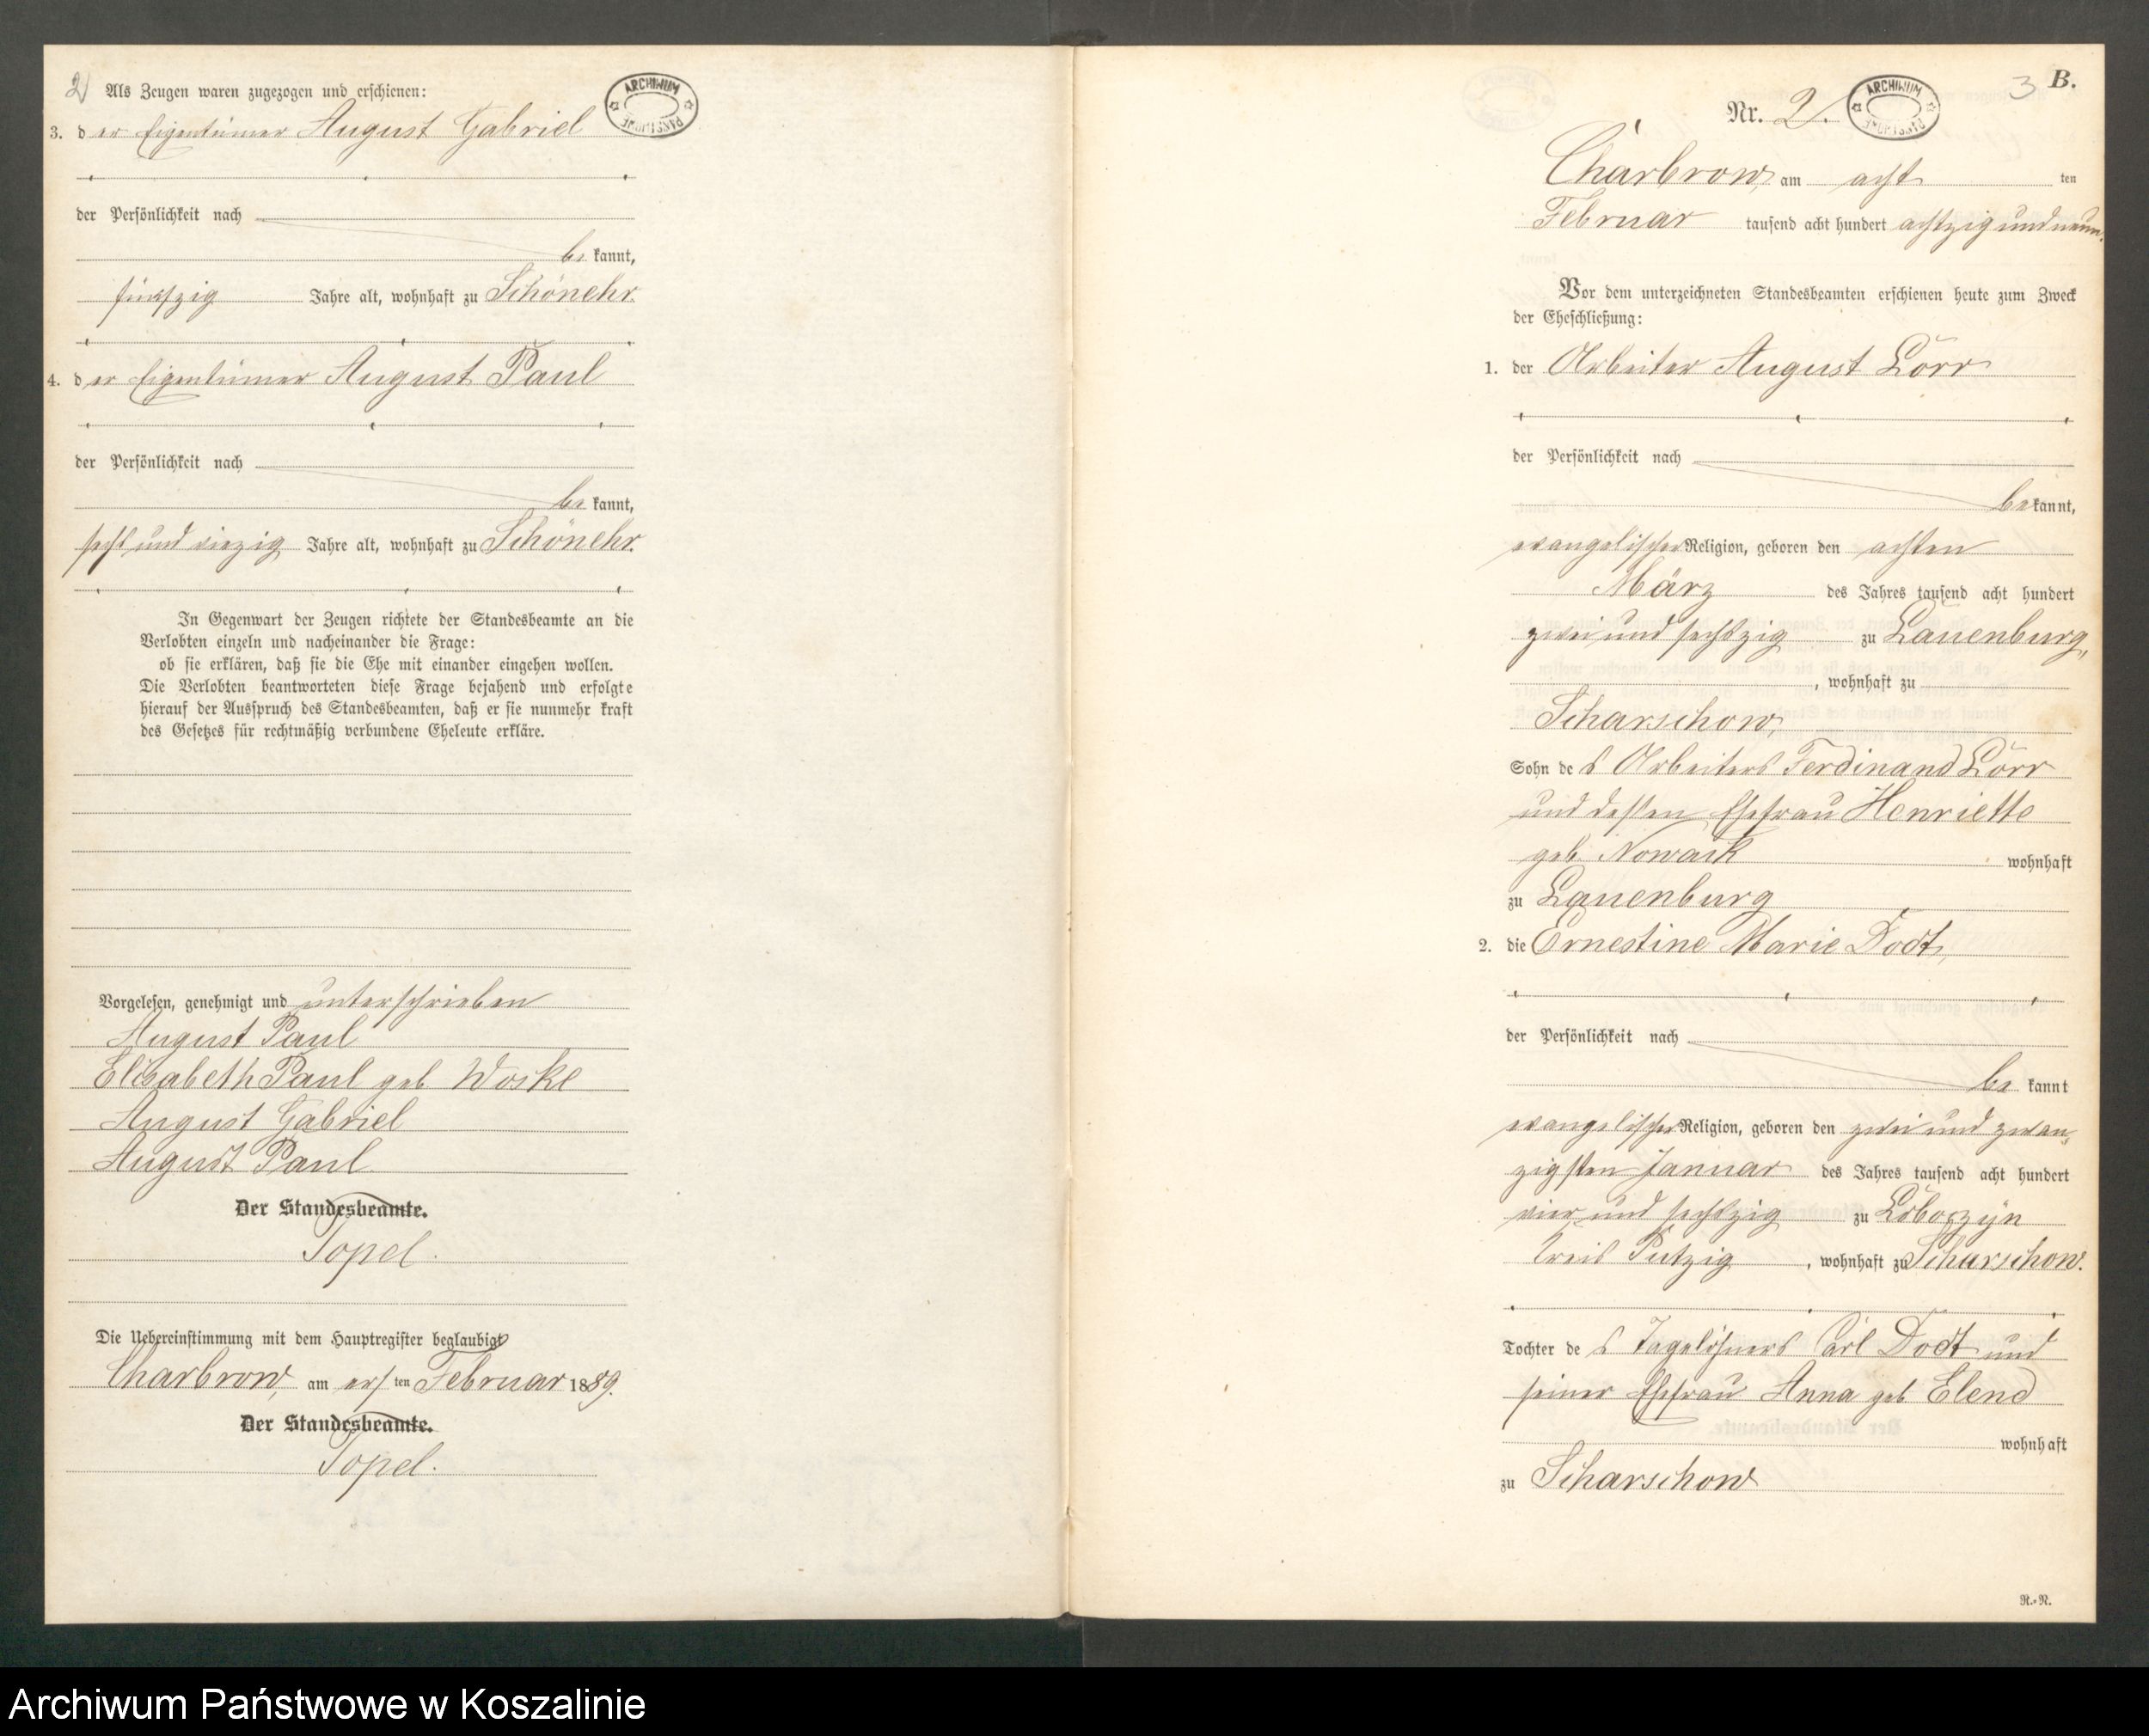 2
Als Zeugen waren zugezogen und erschienen:
ARCHIWUM PAŃSTWOWE
3. der Eigentümer August Gabriel
der Persönlichkeit nach
be kannt,
fünfzig Jahre alt, wohnhaft zu Schönehr.
4. der Eigentümer August Paul
der Persönlichkeit nach
be kannt,
sechs und vierzig Jahre alt, wohnhaft zu Schönehr.
In Gegenwart der Zeugen richtete der Standesbeamte an die
Verlobten einzeln und nacheinander die Frage:
ob sie erklären, daß sie die Ehe mit einander eingehen wollen.
Die Verlobten beantworteten diese Frage bejahend und erfolgte
hierauf der Ausspruch des Standesbeamten, daß er sie nunmehr kraft
des Gesetzes für rechtmäßig verbundene Eheleute erkläre.
Vorgelesen, genehmigt und unterschrieben
August Paul
Elisabeth Paul geb Woske
August Gabriel
August Paul
Der Standesbeamte.
Topel.
Die Uebereinstimmung mit dem Hauptregister beglaubigt
Charbrow, am ersten Februar 1889.
Der Standesbeamte.
Topel.
3 B.
Nr. 2.
ARCHIWUM PAŃSTWOWE
Charbrow, am acht ten
Februar tausend acht hundert achtzig und neun.
Vor dem unterzeichneten Standesbeamten erschienen heute zum Zweck
der Eheschließung:
1. der Arbeiter August Lörr
der Persönlichkeit nach
be kannt,
evangelischer Religion, geboren den achten
März des Jahres tausend acht hundert
zwei und sechszig zu Lauenburg,
, wohnhaft zu
Scharschow,
Sohn des Arbeiters Ferdinand Lörr
und dessen Ehefrau Henriette
geb. Nowack wohnhaft
zu Lauenburg
2. die Ernestine Marie Dodt,
der Persönlichkeit nach
be kannt
evangelischer Religion, geboren den zwei und zwan-
zigsten Januar des Jahres tausend acht hundert
vier und sechszig zu
Kreis Putzig, wohnhaft zu Scharschow.
Tochter des Tagelöhners Carl Dodt und
seiner Ehefrau Anna geb Elend
wohnhaft
zu Scharschow
R.-R.
Archiwum Państwowe w Koszalinie